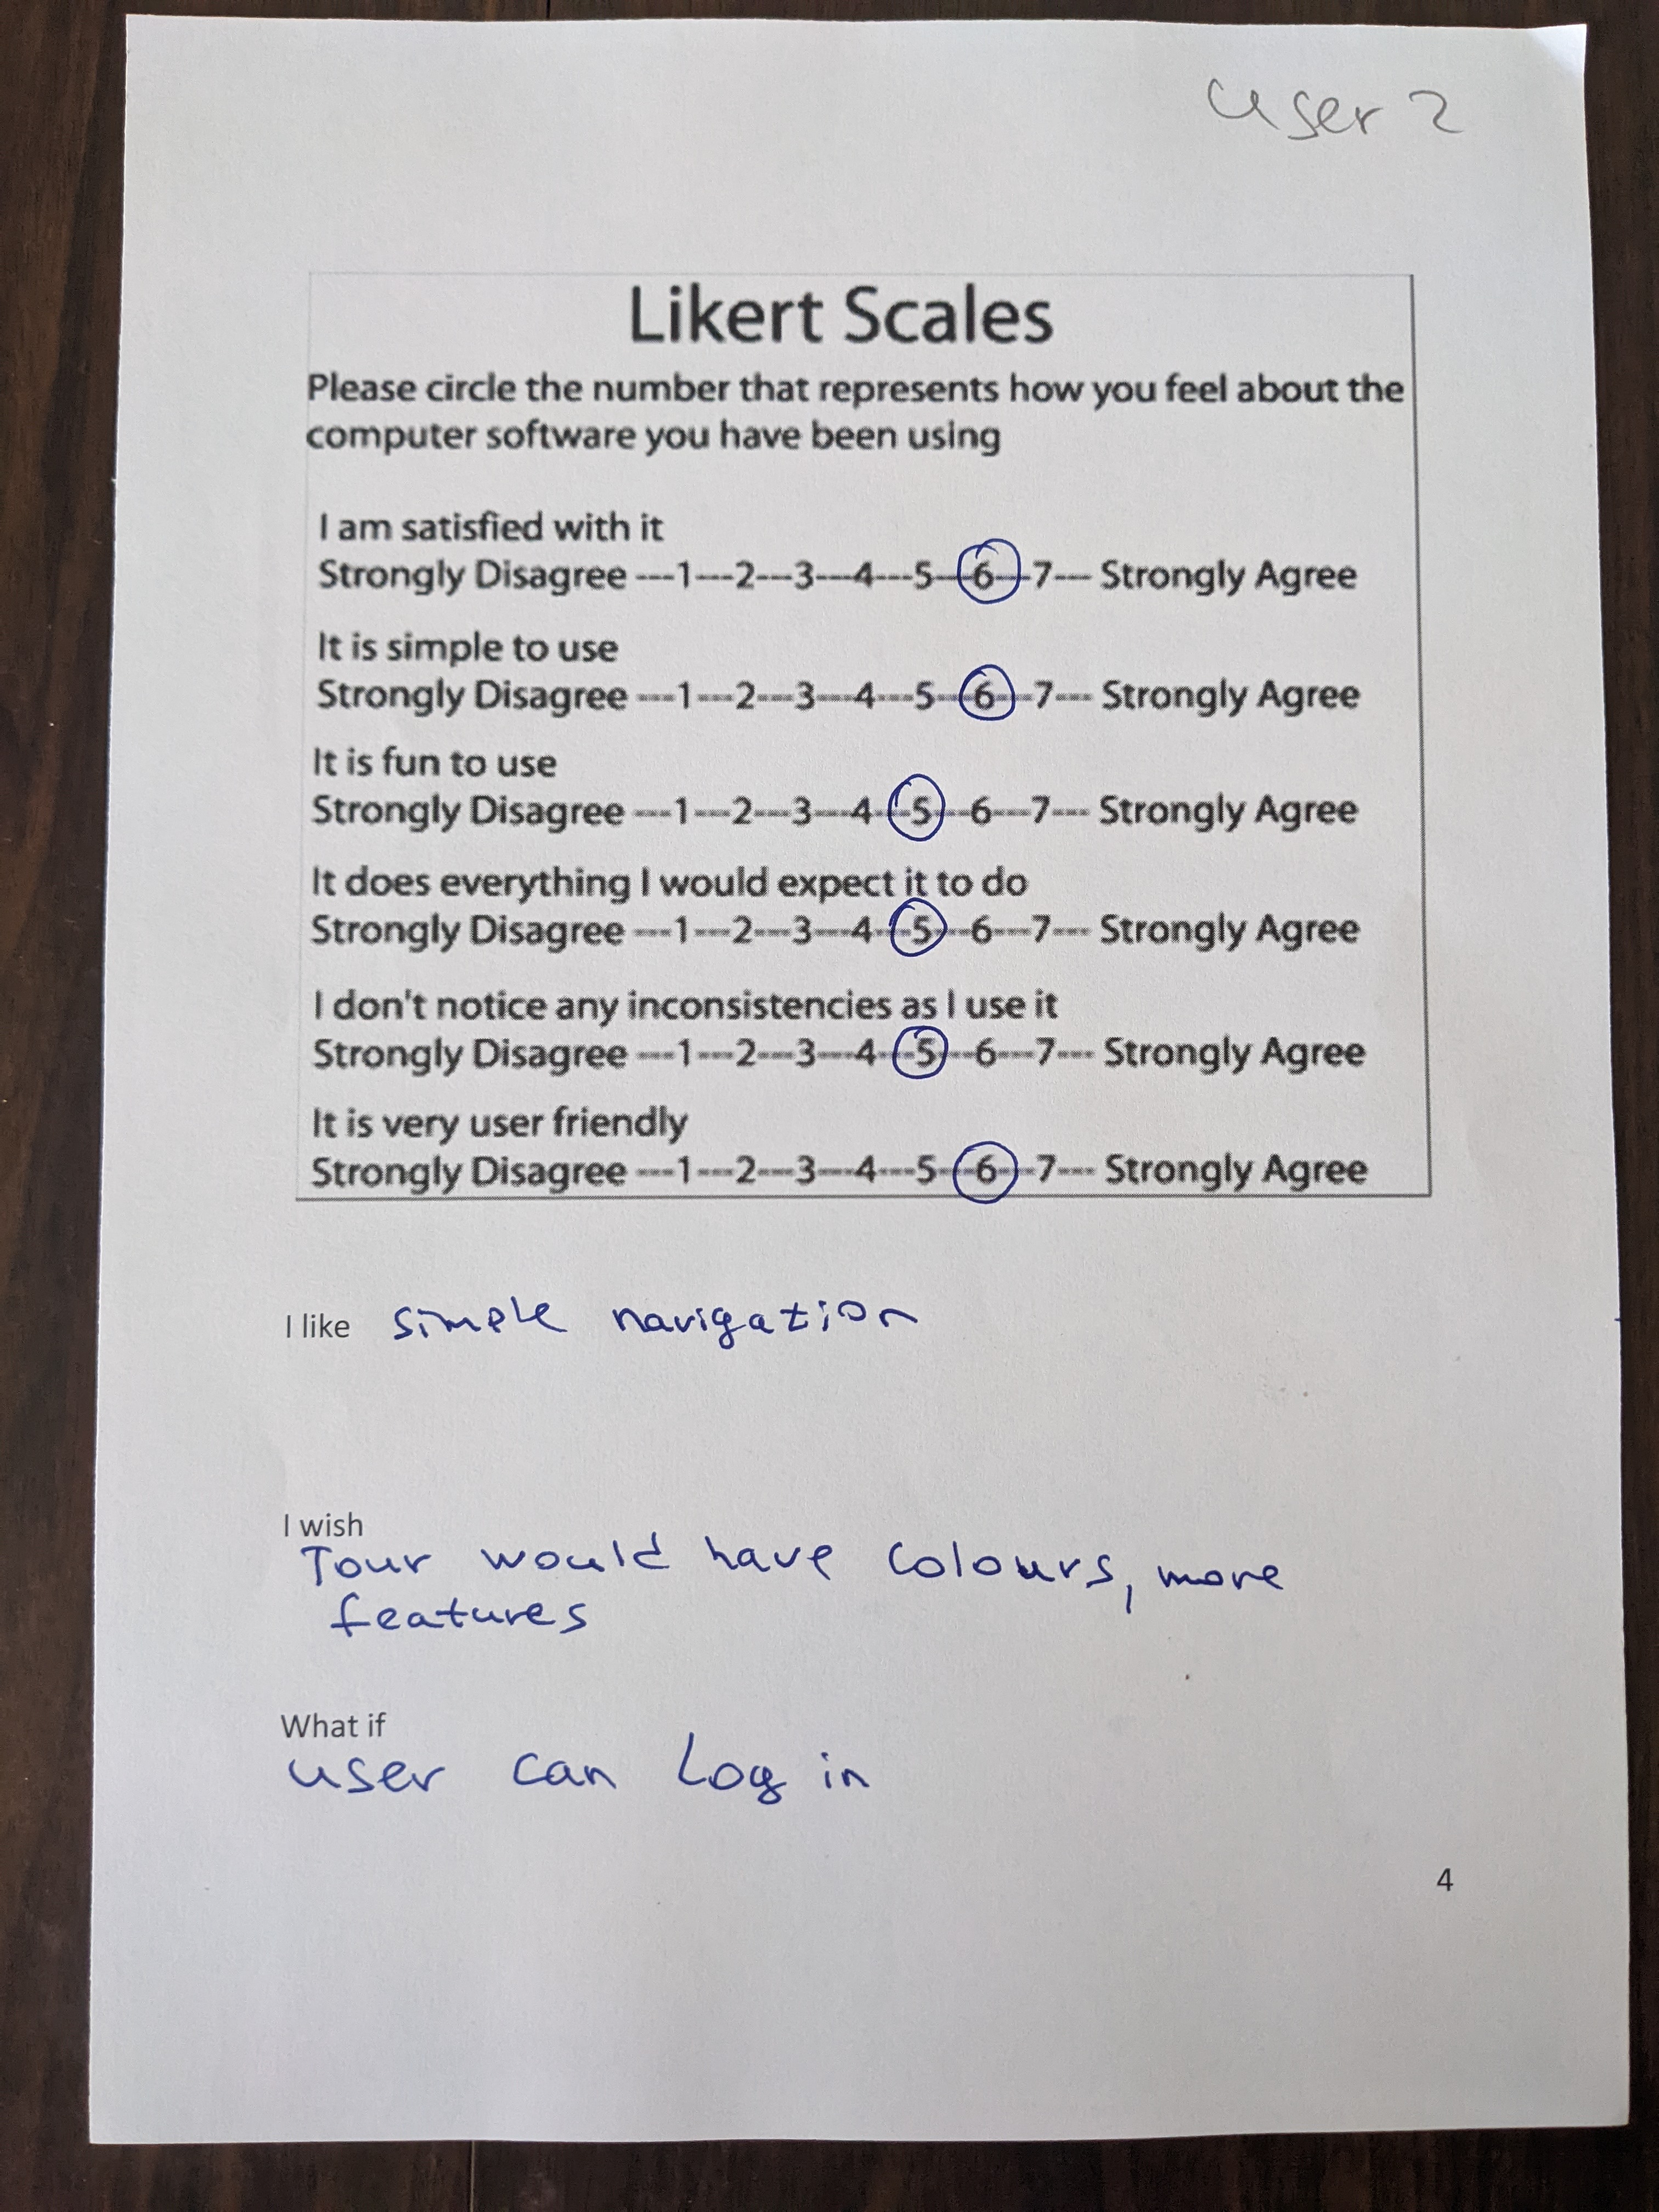 User 2
Likert Scales
Please circle the number that represents how you feel about the
computer software you have been using
I am satisfied with it
Strongly Disagree ---1---2---3---4---5---6---7--- Strongly Agree
It is simple to use
Strongly Disagree ---1---2---3---4---5---6---7--- Strongly Agree
It is fun to use
Strongly Disagree ---1---2---3---4---5---6---7--- Strongly Agree
It does everything I would expect it to do
Strongly Disagree ---1---2---3---4---5---6---7--- Strongly Agree
I don't notice any inconsistencies as I use it
Strongly Disagree ---1---2---3---4---5---6---7--- Strongly Agree
It is very user friendly
Strongly Disagree ---1---2---3---4---5---6---7--- Strongly Agree
I like simple navigation
I wish
Tour would have colours, more
features
What if
user can Log in
4